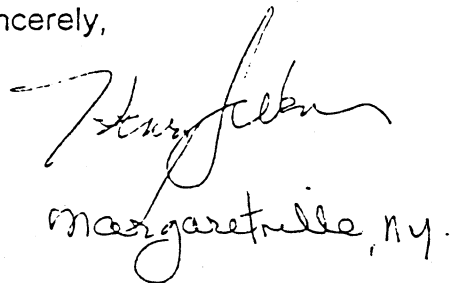 ncerely,
Henry
Margaretville, NY.